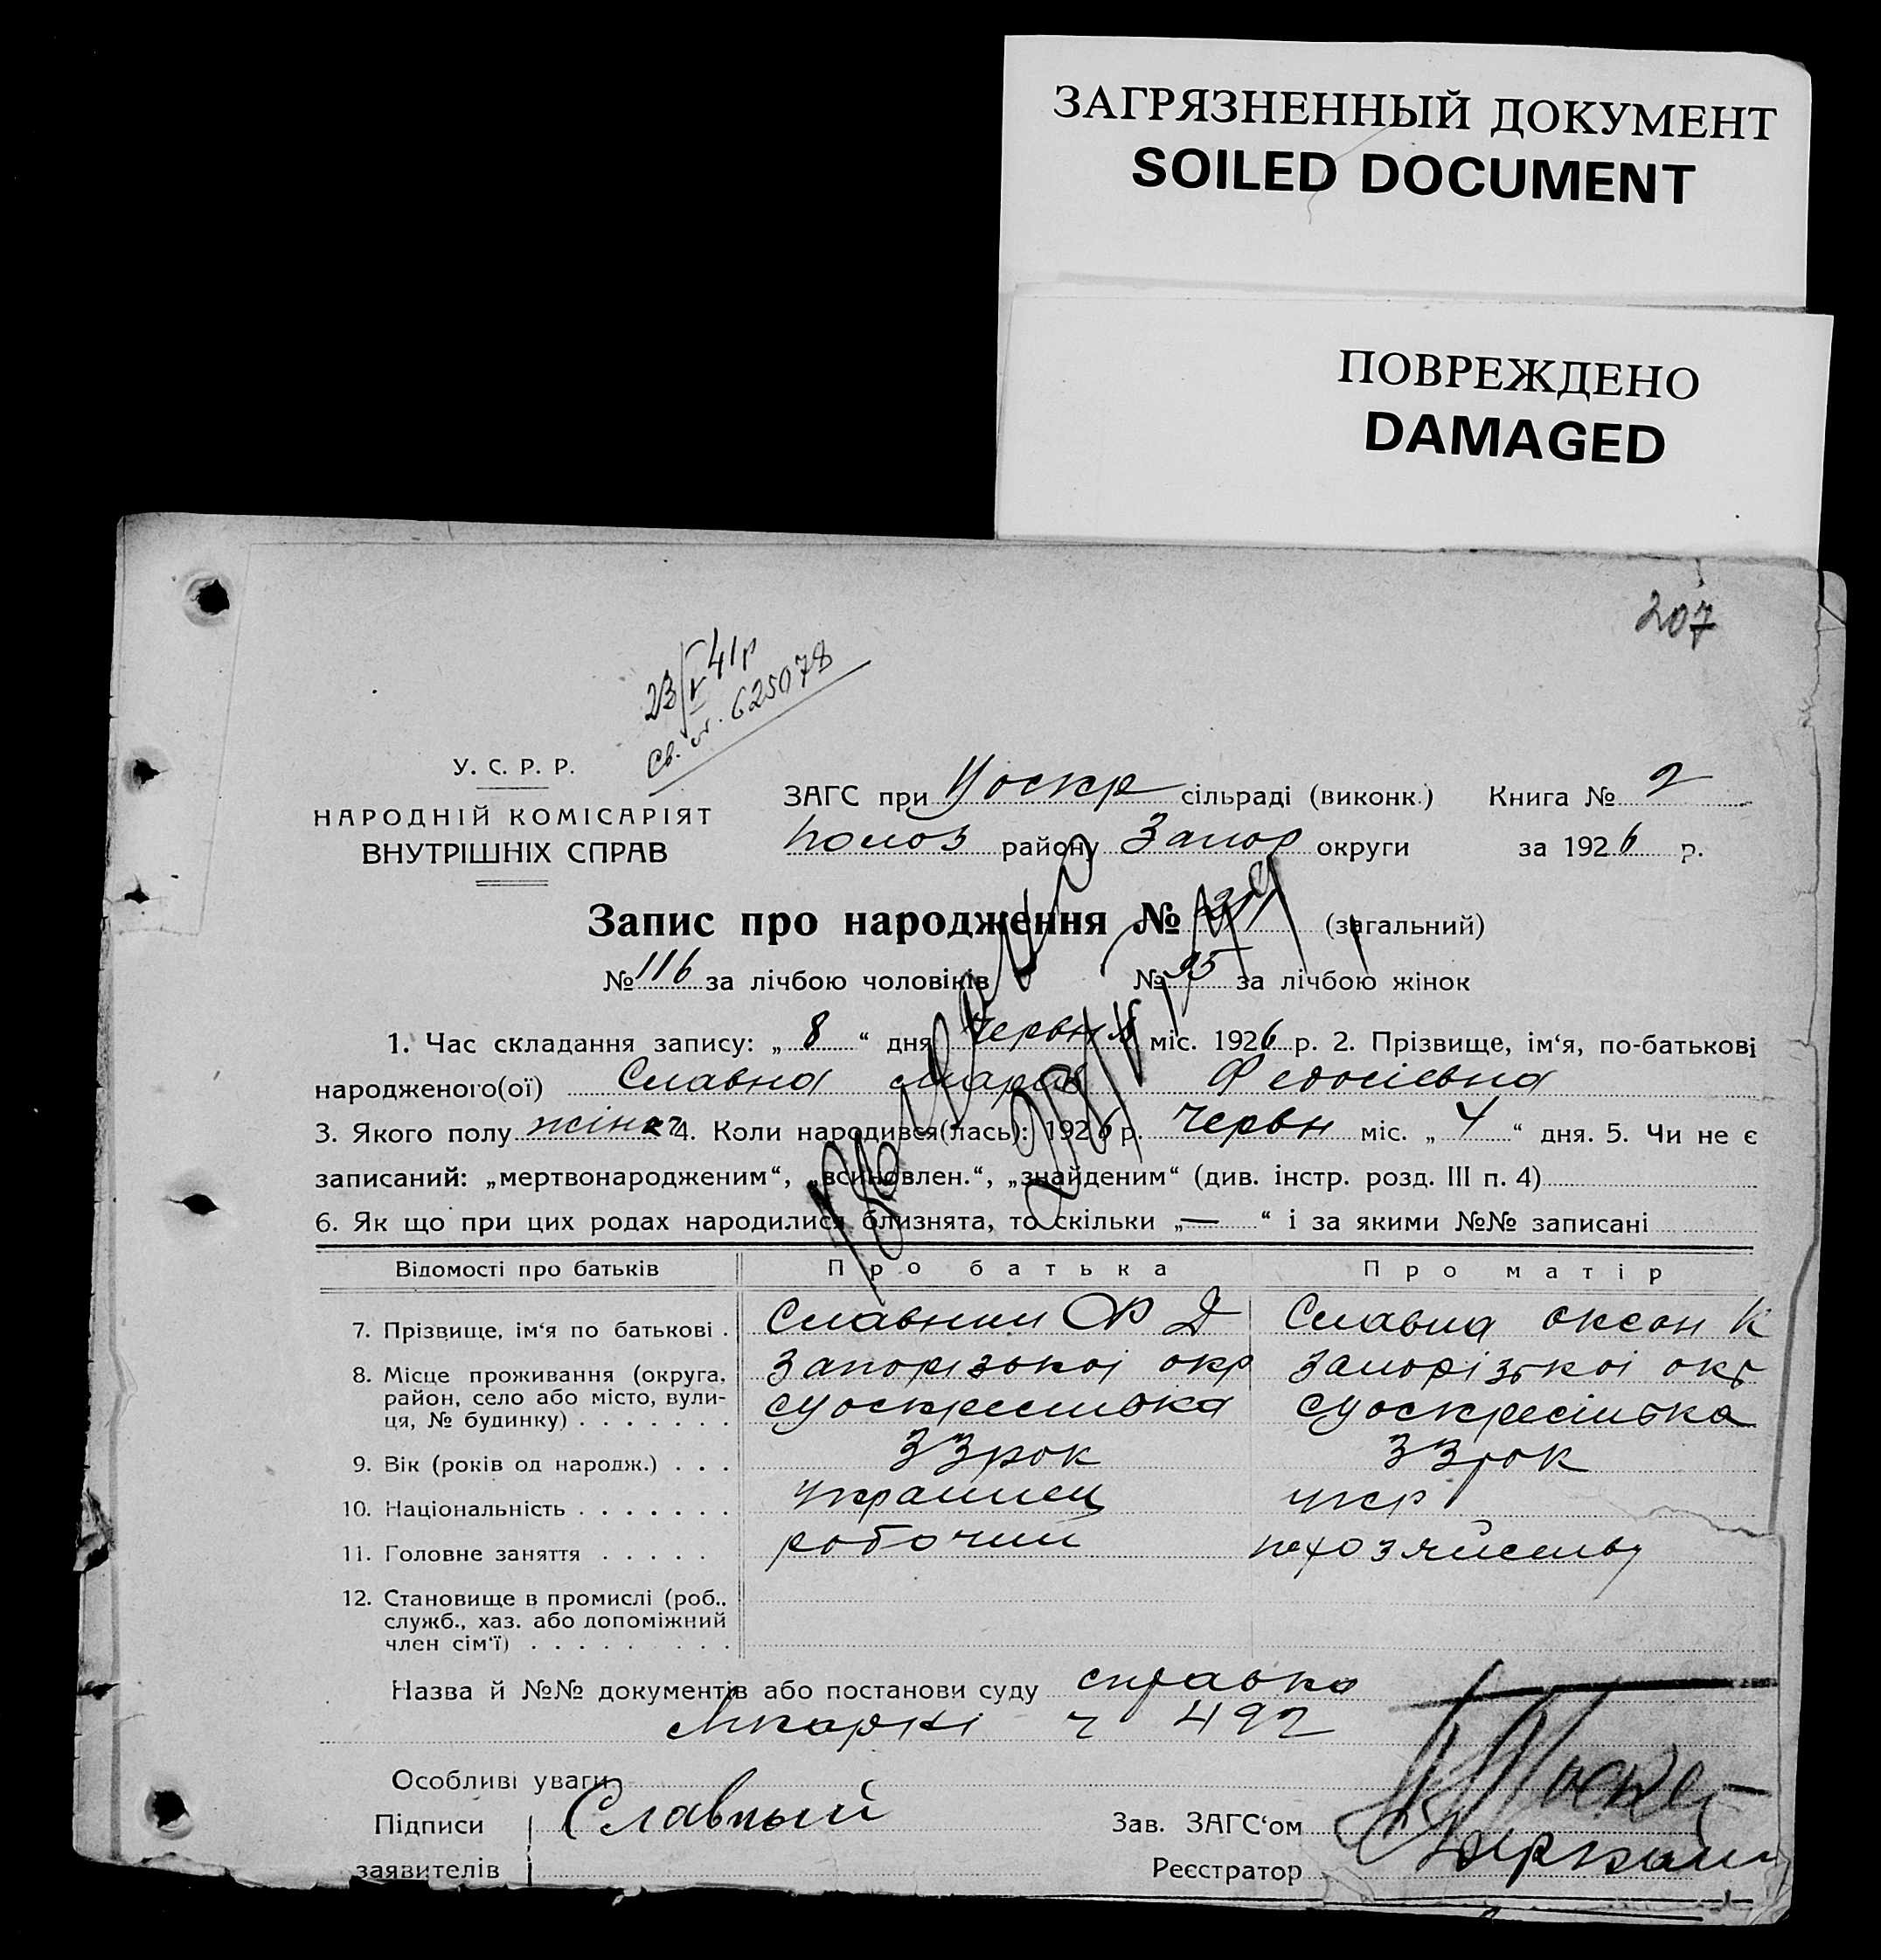 ЗАГРЯЗНЕННЫЙ ДОКУМЕНТ
SOILED DOCUMENT
ПОВРЕЖДЕНО
DAMAGED
207
23/V 41р
Св. 625078
У. С. Р. Р.
НАРОДНІЙ КОМІСАРІЯТ
ВНУТРІШНІХ СПРАВ
ЗАГС при Уоскр сільраді (виконк.) Книга № 2
Полоз району Запор округи за 1926 р.
Запис про народження № 211 (загальний)
№ 116 за лічбою чоловіків № 95 за лічбою жінок
1. Час складання запису: „ 8 “ дня червня міс. 1926 р. 2. Прізвище, ім‘я, по-батькові
народженого(ої) Славна Марія Федосіевна
3. Якого полу жіноч 4. Коли народився(лась): 1926 р. червн міс. „ 4 “ дня. 5. Чи не є
записаний: „мертвонародженим“, „всиновлен.“, „знайденим“ (див. інстр. розд. III п. 4)
6. Як що при цих родах народилися близнята, то скільки „ — “ і за якими №№ записані
Відомості про батьків Про батька Про матір
7. Прізвище, ім‘я по батькові . Славний Ф Д Славна Оксен К
8. Місце проживання (округа, Запорізькоі окр Запорізькоі окр
район, село або місто, вули-
ця, № будинку) . . . . . . .
9. Вік (років од народж.) . . . 33 рок 33 рок
10. Національність . . . . . . . українец укр
11. Головне заняття . . . . . робочий по хозяйству
12. Становище в промислі (роб.,
служб., хаз. або допоміжний
член сім‘ї) . . . . . . . . .
Назва й №№ документів або постанови суду справка
лікаркі ч 492
Особливі уваги
Підписи Славный Зав. ЗАГС‘ом
заявителів Реєстратор